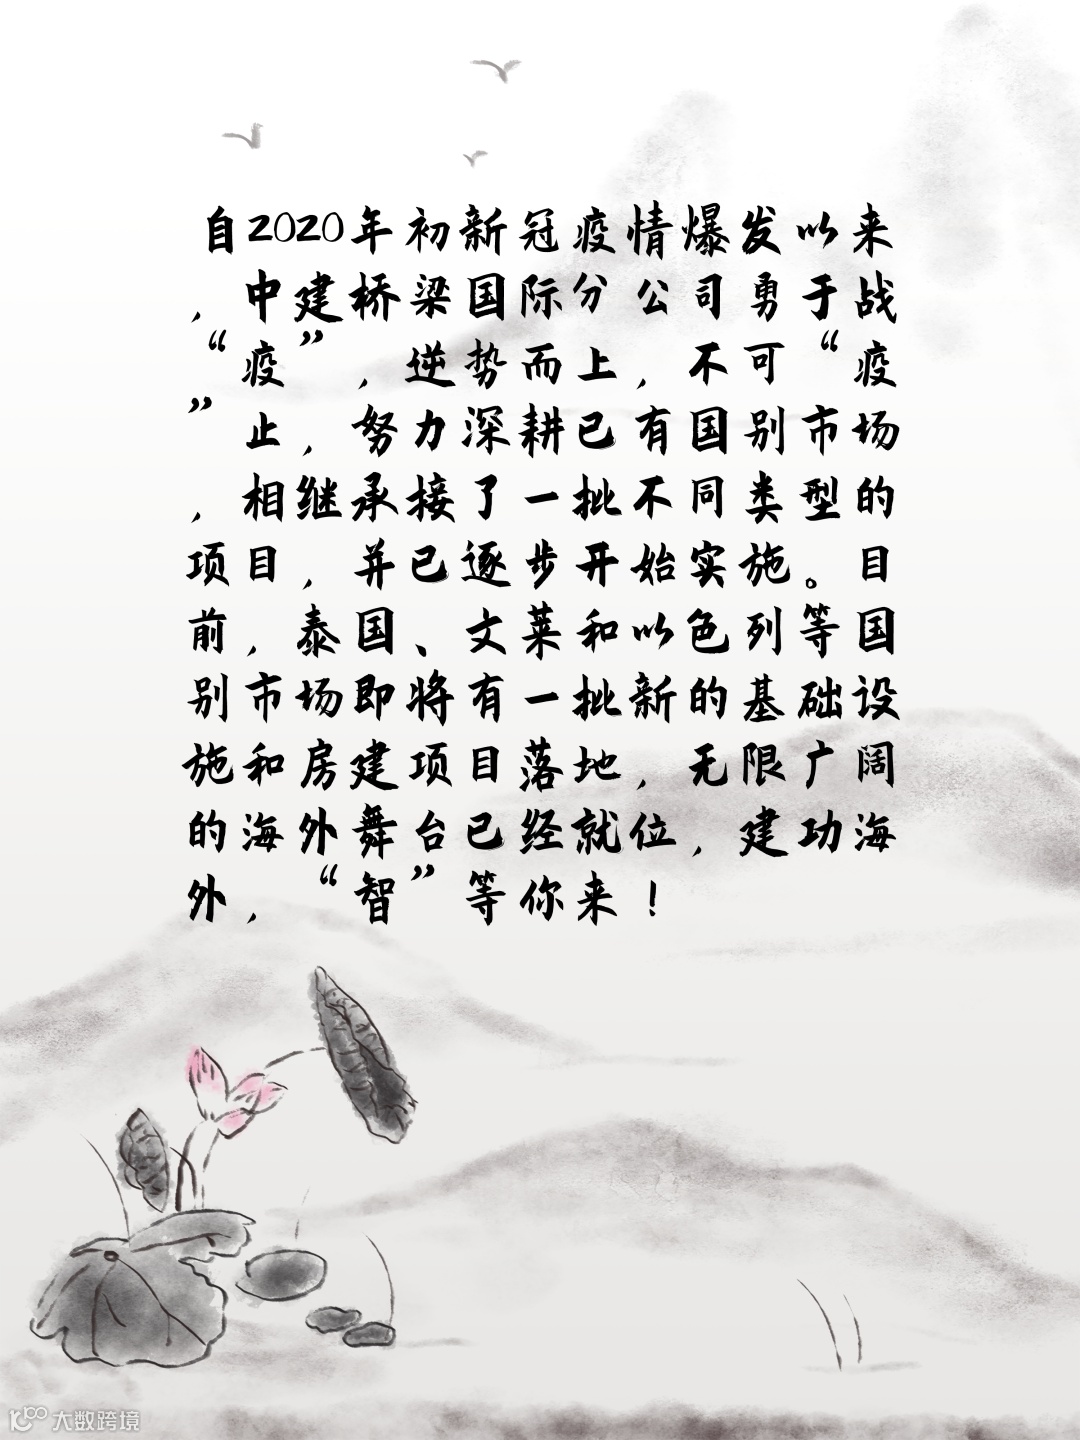 自2020年初新冠疫情爆发以来
，中建桥梁国际分公司勇于战
“疫”，逆势而上，不可“疫
”止，努力深耕已有国别市场
，相继承接了一批不同类型的
项目，并已逐步开始实施。目
前，泰国、文莱和以色列等国
别市场即将有一批新的基础设
施和房建项目落地，无限广阔
的海外舞台已经就位，建功海
外，“智”等你来！
大数跨境